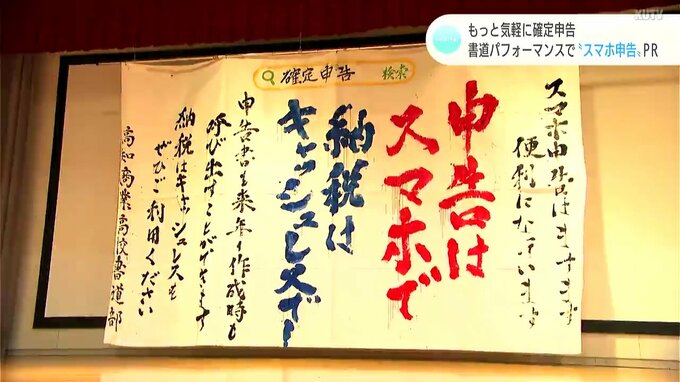 KUTV
もっと気軽に確定申告
書道パフォーマンスで〝スマホ申告〟PR
確定申告 検索
スマホ申告はますます
便利になっています
申告は
スマホで
納税は
キャッシュレスで!
申告書を来年の作成時も
呼び出すことができます
納税はキャッシュレスを
ぜひご利用ください
高知商業高校書道部